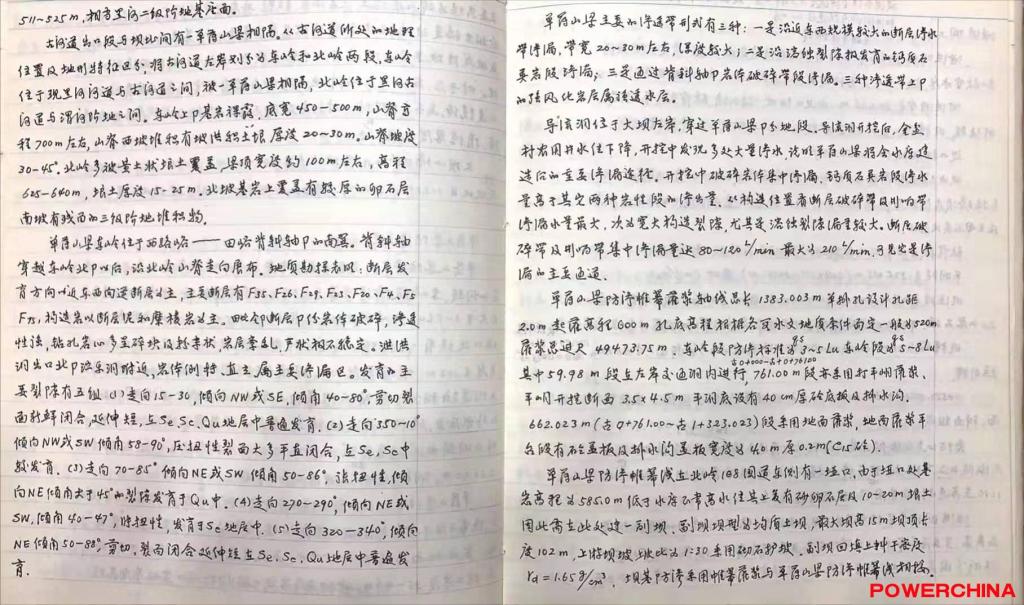 511~525m,相当黑河二级阶地基座面。
古河道出口段与坝址间有一单薄山梁相隔。从古河道所处的地理
位置及地形特征区分,将古河道左岸划分为东岭和北岭两段,东岭
位于现黑河河道与古河道之间,被一单薄山梁相隔,北岭位于黑河古
河道与渭河阶地之间。东岭上P基岩裸露,底宽450~500m,山脊高
程700m左右,山脊西坡堆积有坡洪积土壤厚度20~30m。山脊坡度
30-45°。北岭多被黄土状壤土覆盖,梁顶宽度约100m左右,高程
625-640m,壤土厚度15-25m。北坡基岩上覆盖有较厚的卵石层
南坡有残留的三级阶地堆积物。
单薄山梁东岭位于西骆峪——田峪背斜轴P的南翼。背斜轴
穿越东岭北P以后,沿北岭山脊走向展布。地质勘探表明:断层发
育方向以近东西向逆断层为主,主要断层有F35、F26、F29、F23、F20、F4、F5
F75,构造岩以断层泥和糜棱岩为主。由此令P断层P份岩体破碎,渗透
性强,钻孔岩心多呈碎块及粉末状,岩层零乱,产状极不稳定。泄洪
洞出口北P溢流洞附近,岩体倒转、直立,属主要渗漏区。发育的主
要裂隙有五组(1)走向15-30,倾向NW或SE,倾角40-80°,剪切裂
面新鲜闭合,延伸短,在Se、Sc、Qu地层中普遍发育。(2)走向350~10°
倾向NW或SW倾角58-90°,压扭性裂面大多平直闭合,在Se,Sc中
较发育。(3)走向70-85°倾向NE或SW倾角50-86°,张扭性,倾
向NE倾角大于45°的裂隙发育于Qu中。(4)走向270-290°,倾向NE或
SW,倾角40-47°,张扭性,发育于Sc地层中。(5)走向320-340°,倾向
NE倾角50-88°,剪切,裂面闭合延伸短在Se、Sc、Qu地层中普遍发
育。
单薄山梁主要的渗透带形式有三种:一是沿近东西规模较大的断层渗水
带渗漏,带宽20~30m左右,深度较大;二是沿溶蚀裂隙相发育的钙质石
英岩段渗漏;三是通过背斜轴P岩体破碎带段渗漏。三种渗透带上P
的强风化岩层属强透水层。
导流洞位于大坝左岸,穿过单薄山梁P分地段,导流洞开挖后,金盆
村农用井水位下降,开挖中发现多处大量渗水,说明单薄山梁将会水库建
造后的主要渗漏途径。开挖中破碎岩体集中渗漏,钙质石英岩段渗水
量高于其它两种岩性段的渗出量,从构造位置看断层破碎带及影响带
渗漏水量最大,次为宽大构造裂隙,尤其是溶蚀裂隙漏量较大。断层破
碎带及影响带集中渗漏量达80~120 L/min 最大为210 L/min,可见它是渗
漏的主要通道。
单薄山梁防渗帷幕灌浆轴线总长1383.003m单排孔设计孔距
2.0m起灌高程600m孔底高程根据各可水文地质条件而定一般为520m
灌浆总进尺49473.75m。东岭段防渗标准为q≤3~5Lu 东岭段为q≤5~8Lu
其中59.98m段在左岸交通洞内进行,古0+000-古0+761.00 761.00m段亦采用打平硐灌浆、
平硐开挖断面3.5×4.5m平洞底设有40cm厚砼底板及排水沟。
662.023m(古0+761.00~古1+323.023)段采用地面灌浆,地面灌浆平
台段有石砼盖板及排水沟盖板宽度为4.0m厚0.2m(C15砼)。
单薄山梁防渗帷幕线在北岭108国道东侧有一垭口,由于垭口处基
岩高程为585.0m低于水库正常高水位其上复有砂卵石层及10-20m壤土
因此需在此处建一副坝。副坝坝型为均质土坝,最大坝高15m坝顶长
度102m,上游坝坡坡比为1:30采用砌石护坡。副坝回填土料干密度
rd=1.65g/cm³。坝基防渗采用帷幕灌浆与单薄山梁防渗帷幕线相接。
POWERCHINA